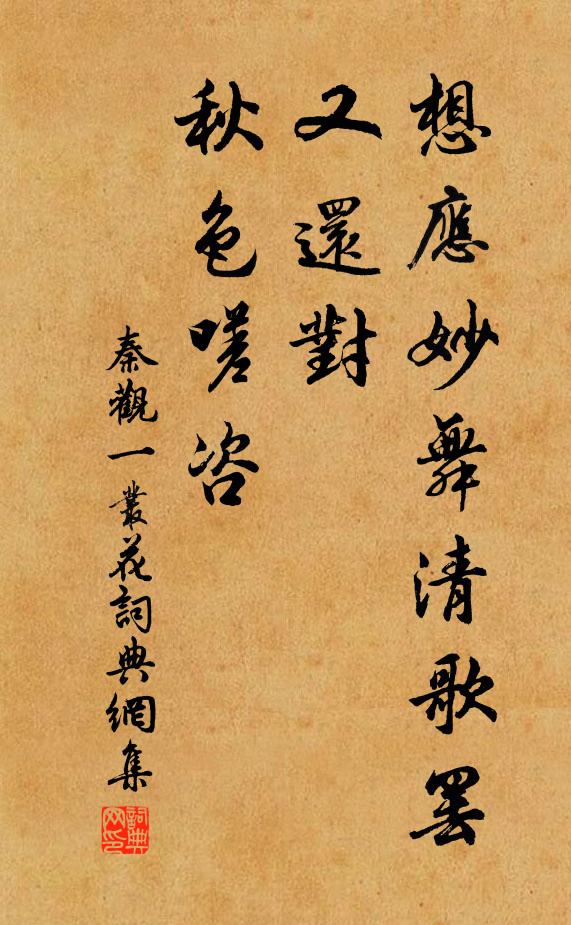 想應妙舞清歌罷
又還對
秋色嗟咨
秦觀一叢花詞典網集
詞典
网印